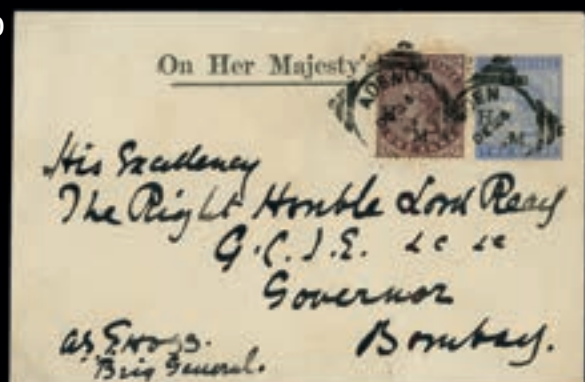 On Her Majesty's
ADEN
ADEN
His Excellency
The Right Honble Lord Reay
G.C.I.E. &c &c
Governor
Bombay.
Brig General.